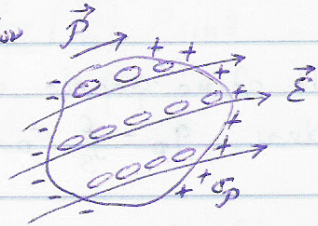 P⃗
ℰ⃗
σₚ